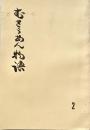 むさうあん物語
2